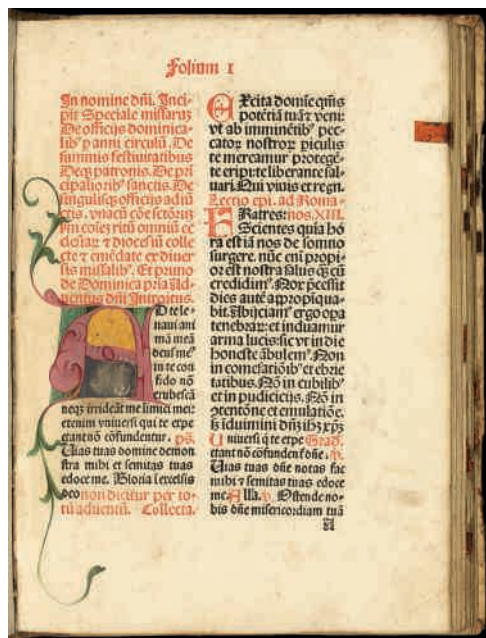 Folium I
In nomine dñi. Inci-
pit Speciale missarũ
De officijs dominica-
libꝰ p anni circulũ. De
summis festiuitatibus
Deqꝫ patronis. De pri
cipalioribꝰ sanctis. De
singulisqꝫ officijs adiũ
ctis. vnacũ cõe sctõrũ
ritũ omniũ
clesiaꝝ ⁊ diocesiũ colle
cte ⁊ emẽdate ex diuer
sis missalibꝰ. Et primo
de Dominica pria Ad-
uentus dñi Introitus.
AD te le-
uaui ani
mã meã
deus meꝰ
in te con
fido nõ
erubescã
neqꝫ irrideãt me iimici mei:
etenim vniuersi qui te expe
ctant nõ cõfundentur. ps.
Uias tuas domine demon
stra mihi et semitas tuas
edoce me. Gloria I excelsis
deo non dicitur per to-
tũ aduentũ. Collecta.
EXcita domĩe q̃ms
potẽtiã tuã ⁊ veni:
vt ab imminẽtibꝰ pec-
catoꝝ nostroꝝ piculis
te mereamur protegẽ-
te eripi: te liberante sal-
uari. Qui viuis et regn.
Lectio epi. ad Roma-
FRatres: nos. XIII.
Scientes quia ho
ra est iã nos de somno
surgere. nũc em̃ propi-
or est nostra salus qꝫ cũ
credidimꝰ. Nox pcessit
dies autẽ appropiqua-
bit. Abijciamꝰ ergo opa
tenebraꝝ: et induamur
arma lucis: sic vt in die
honeste ãbulemꝰ. Non
in comesatiõibꝰ et ebrie
tatibus. Nõ in cubilibꝰ
et in pudicicijs. Nõ in
ꝯtentõne et emulatiõe.
sꝫ iduimini dñꝫ ihꝫ xp̃ꝫ
Uniuersi q̃ te expe Grad.
ctant nõ cõfunden̄ dñe. v.
Uias tuas dñe notas fac
mihi ⁊ semitas tuas edoce
me. Alla. v. Ostende no-
bis dñe misericordiam tuã